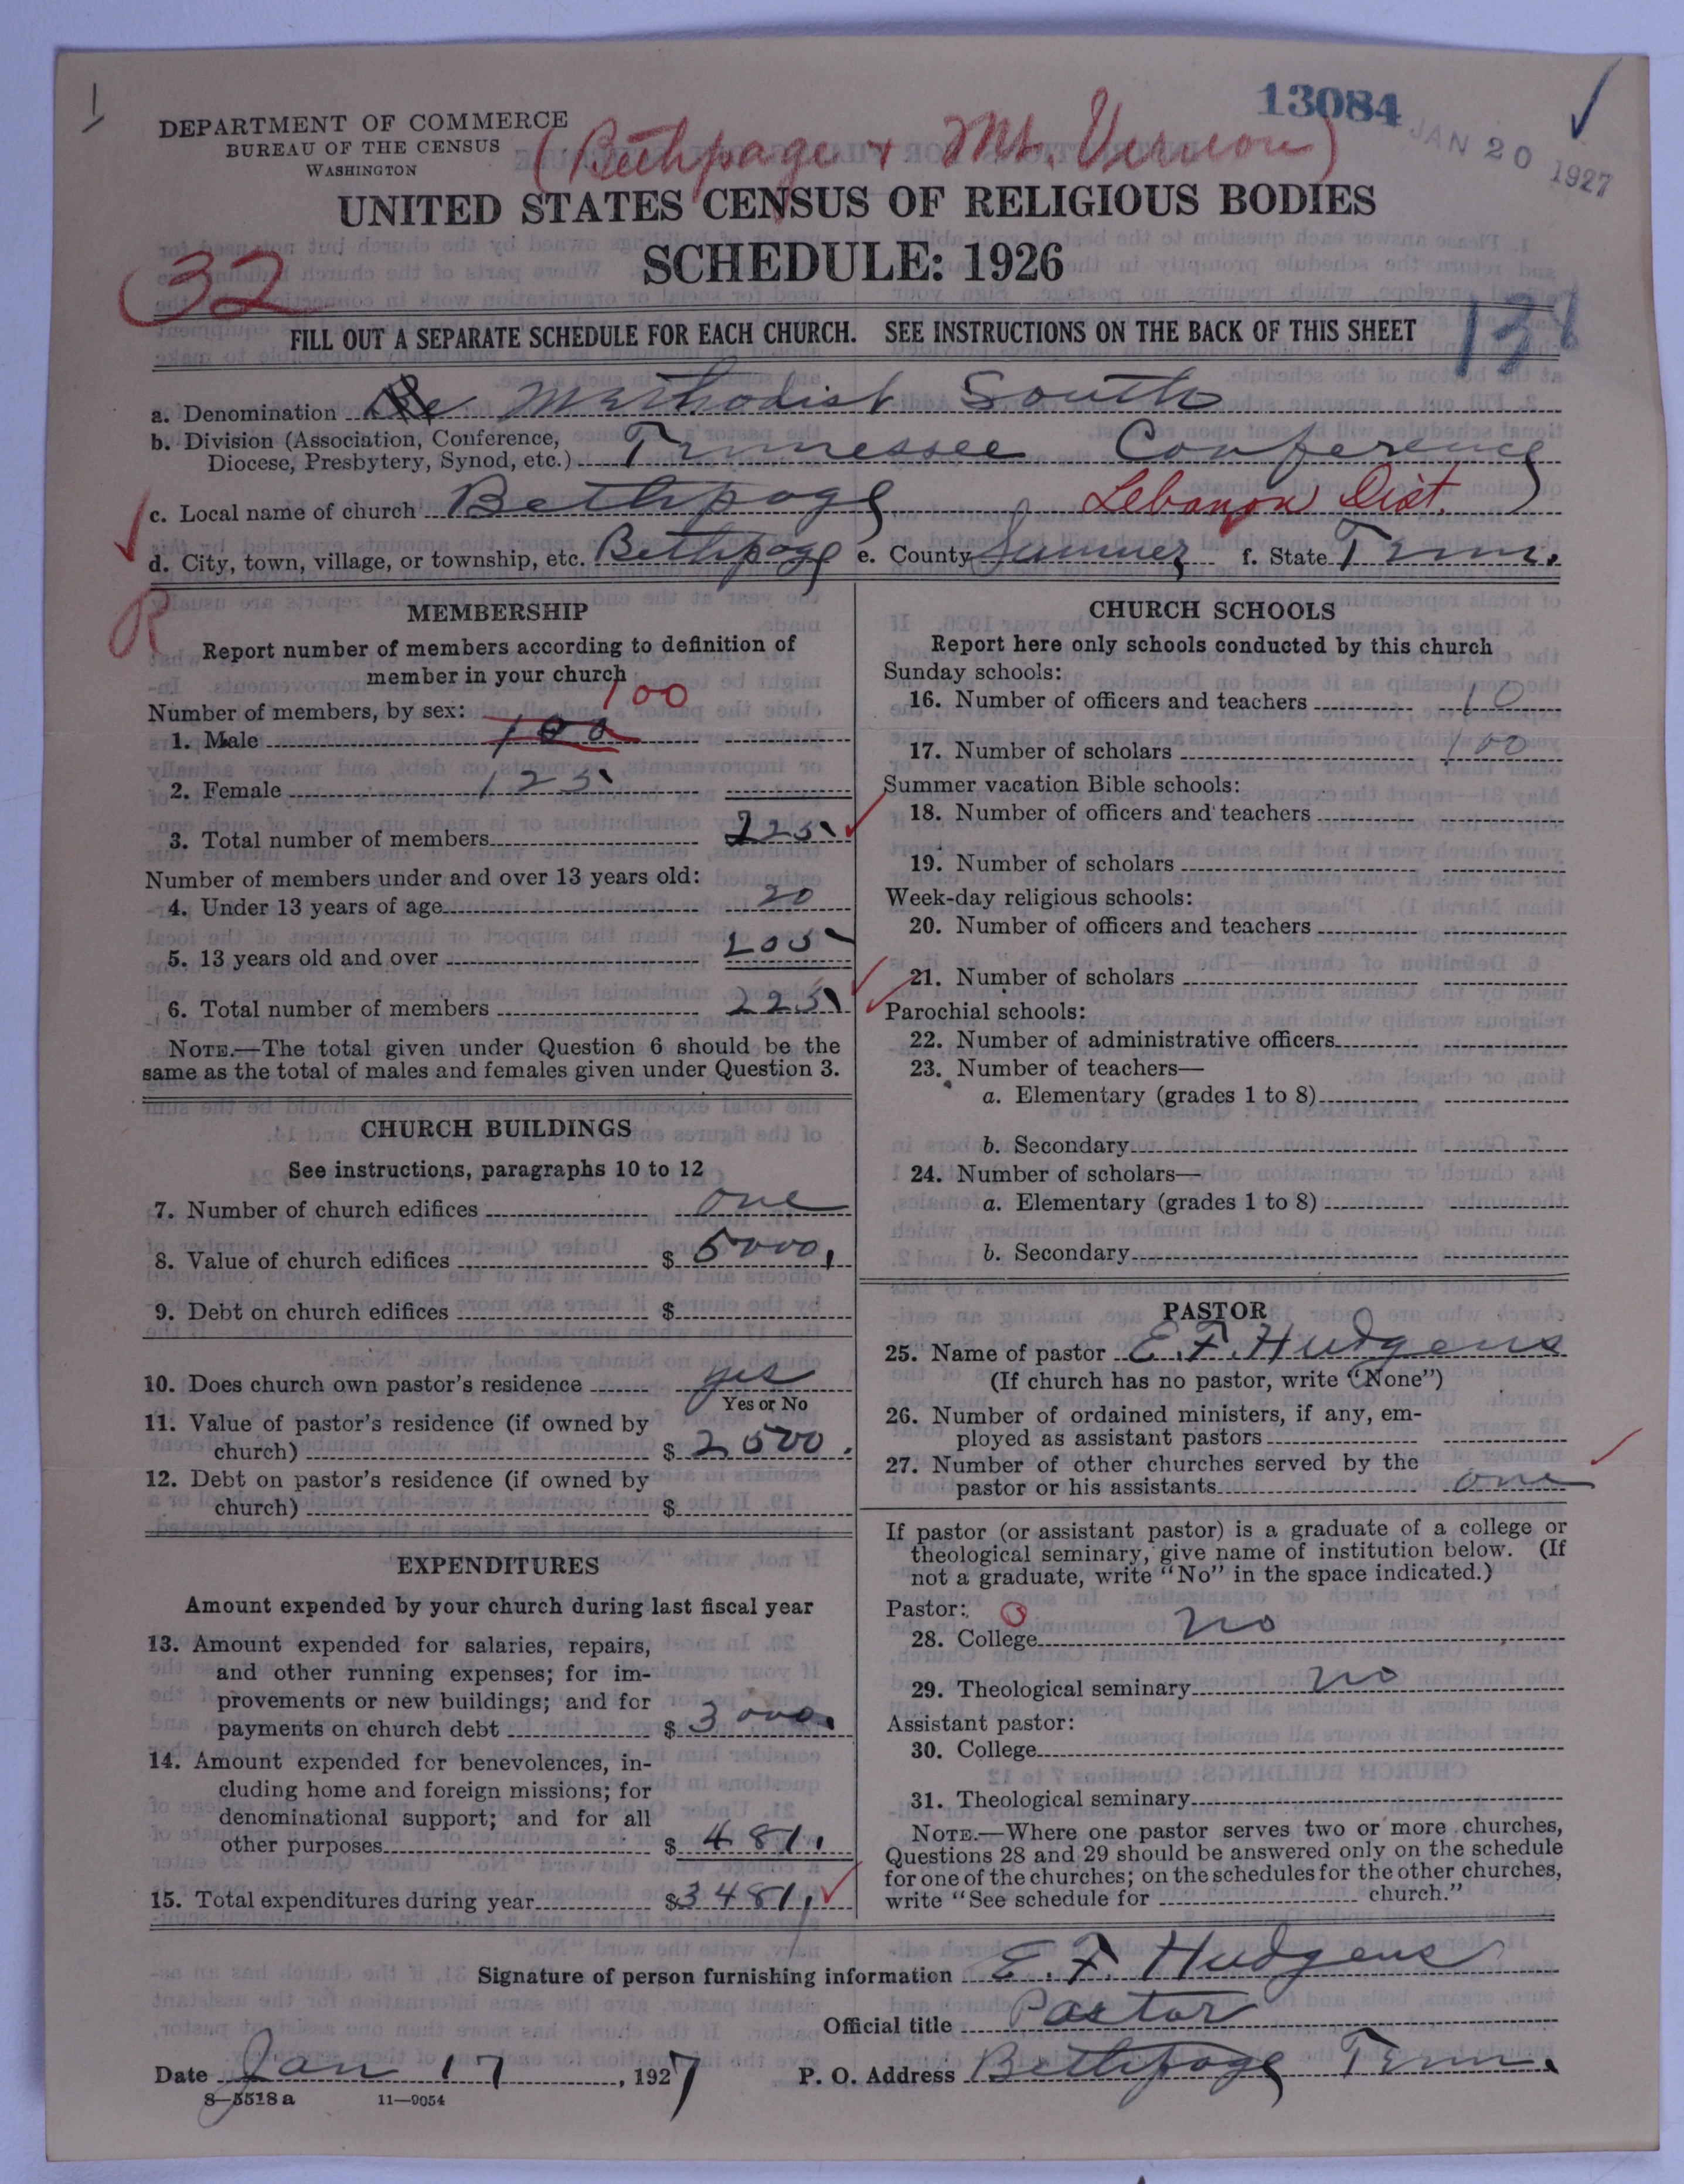 1
13084
JAN 20 1927
DEPARTMENT OF COMMERCE
BUREAU OF THE CENSUS
WASHINGTON
(Bethpage + Mt. Vernon)
UNITED STATES CENSUS OF RELIGIOUS BODIES
SCHEDULE: 1926
32
FILL OUT A SEPARATE SCHEDULE FOR EACH CHURCH. SEE INSTRUCTIONS ON THE BACK OF THIS SHEET
a. Denomination Methodist South
b. Division (Association, Conference,
Diocese, Presbytery, Synod, etc.) Tennessee Conference
c. Local name of church Bethpage Lebanon Dist.
d. City, town, village, or township, etc. Bethpage e. County Sumner f. State Tenn.
R
MEMBERSHIP
Report number of members according to definition of
member in your church
Number of members, by sex: 100
1. Male 100
2. Female 125
3. Total number of members 225
Number of members under and over 13 years old:
4. Under 13 years of age 20
5. 13 years old and over 205
6. Total number of members 225
NOTE.—The total given under Question 6 should be the
same as the total of males and females given under Question 3.
CHURCH BUILDINGS
See instructions, paragraphs 10 to 12
7. Number of church edifices one
8. Value of church edifices $ 5000.
9. Debt on church edifices $
10. Does church own pastor's residence yes
Yes or No
11. Value of pastor's residence (if owned by
church) $ 2500.
12. Debt on pastor's residence (if owned by
church) $
EXPENDITURES
Amount expended by your church during last fiscal year
13. Amount expended for salaries, repairs,
and other running expenses; for im-
provements or new buildings; and for
payments on church debt $ 3000.
14. Amount expended for benevolences, in-
cluding home and foreign missions; for
denominational support; and for all
other purposes $ 481.
15. Total expenditures during year $ 3481.
CHURCH SCHOOLS
Report here only schools conducted by this church
Sunday schools:
16. Number of officers and teachers 10
17. Number of scholars 100
Summer vacation Bible schools:
18. Number of officers and teachers
19. Number of scholars
Week-day religious schools:
20. Number of officers and teachers
21. Number of scholars
Parochial schools:
22. Number of administrative officers
23. Number of teachers—
a. Elementary (grades 1 to 8)
b. Secondary
24. Number of scholars—
a. Elementary (grades 1 to 8)
b. Secondary
PASTOR
25. Name of pastor E. F. Hudgens
(If church has no pastor, write "None")
26. Number of ordained ministers, if any, em-
ployed as assistant pastors
27. Number of other churches served by the
pastor or his assistants one
If pastor (or assistant pastor) is a graduate of a college or
theological seminary, give name of institution below. (If
not a graduate, write "No" in the space indicated.)
Pastor: 0
28. College no
29. Theological seminary no
Assistant pastor:
30. College
31. Theological seminary
NOTE.—Where one pastor serves two or more churches,
Questions 28 and 29 should be answered only on the schedule
for one of the churches; on the schedules for the other churches,
write "See schedule for church."
Signature of person furnishing information E. F. Hudgens
Official title Pastor
Date Jan 17, 1927 P. O. Address Bethpage Tenn.
8—5518 a 11—9054